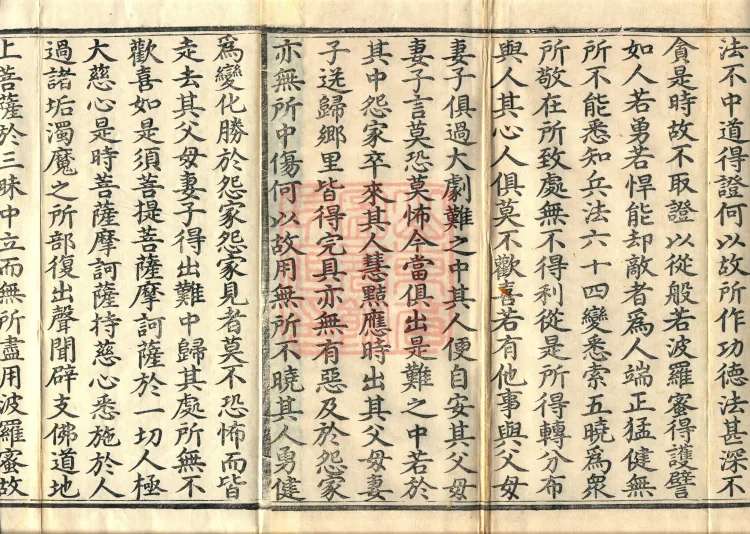 法不中道得證何以故所作功德法甚深不
貪是時故不取證以從般若波羅蜜得護譬
如人若勇若悍能却敵者爲人端正猛健無
所不能悉知兵法六十四變悉索五曉爲衆
所敬在所致處無不得利從是所得轉分布
與人其心人俱莫不歡喜若有他事與父母
妻子俱過大劇難之中其人便自安其父母
妻子言莫恐莫怖今當俱出是難之中若於
其中怨家卒來其人慧黠應時出其父母妻
子送歸鄉里皆得完具亦無有惡及於怨家
亦無所中傷何以故用無所不曉其人勇健
爲變化勝於怨家怨家見者莫不恐怖而皆
走去其父母妻子得出難中歸其處所無不
歡喜如是須菩提菩薩摩訶薩於一切人極
大慈心是時菩薩摩訶薩持慈心悉施於人
過諸垢濁魔之所部復出聲聞辟支佛道地
上菩薩於三昧中立而無所盡用波羅蜜故